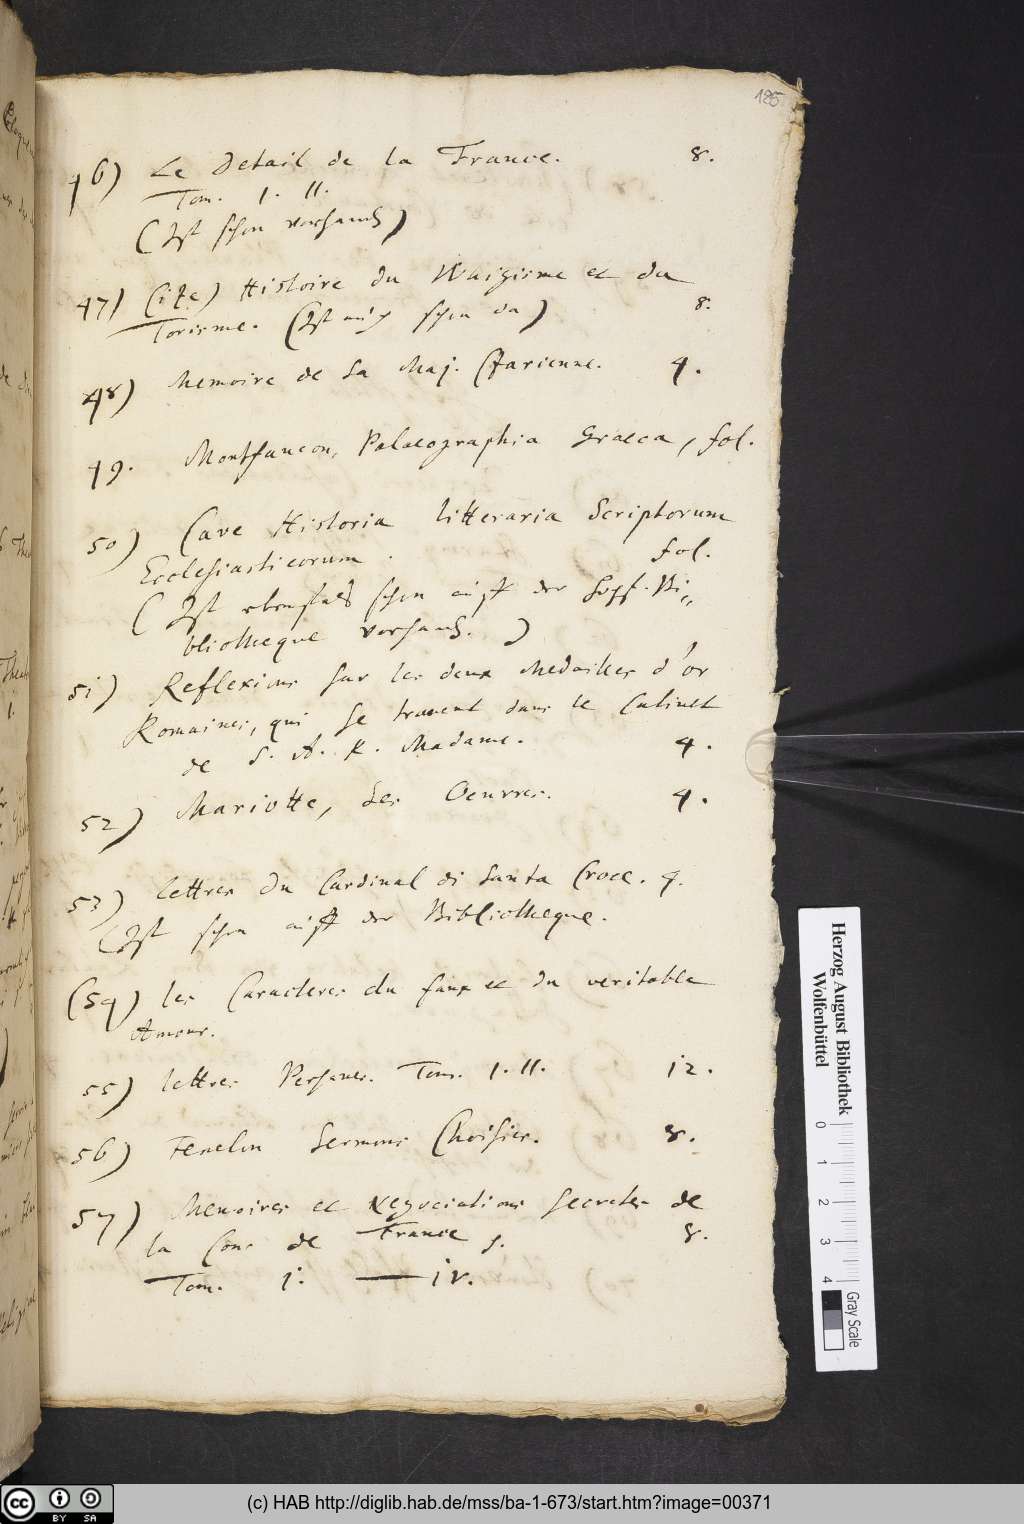 125
46) Le Detail de la France. 8.
Tom. I. II.
(Ist schon vorhand)
47) (ite) Histoire du Whigisme et du
Torisme. (Ist auch schon da) 8.
48) Memoire de Sa Maj. Czarienne. 4.
49. Montfaucon, Palaeographia Graeca, fol.
50) Cave Historia litteraria Scriptorum
Ecclesiasticorum. fol.
(Ist ebenfalls schon auff der Hoff-Bi=
bliotheque vorhand.)
51) Reflexions sur les deux Medailles d'or
Romaines, qui se trouvent dans le Cabinet
de S. A. R. Madame. 4.
52) Mariotte, Les Oeuvres. 4.
53) lettres du Cardinal di Santa Croce. 4.
(Ist schon auff der Bibliotheque.
(54) les Caracteres du faux et du veritable
Amour.
55) lettres Persanes. Tom. I. II. 12.
56) Fenelon Sermons Choisies. 8.
57) Memoires et Negociations secretes de
la Cour de France 8.
Tom. I. — IV.
Herzog August Bibliothek
Wolfenbüttel
0 1 2 3 4
Gray Scale
cc BY SA
(c) HAB http://diglib.hab.de/mss/ba-1-673/start.htm?image=00371